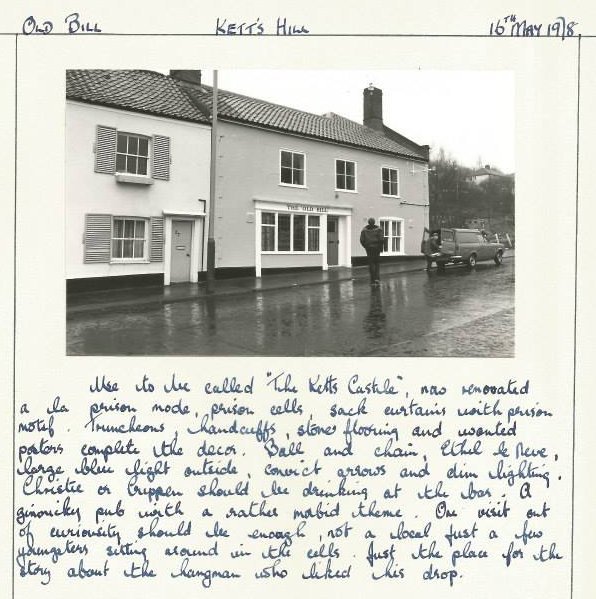 OLD BILL KETT'S HILL 16TH MAY 1978.
THE OLD BILL
Use to be called "The Ketts Castile", now renovated
a la prison mode, prison cells, sack curtains with prison
motif. Truncheons, handcuffs, stone flooring and wanted
posters complete the decor. Ball and chain, Ethel le Neve,
large blue light outside, convict arrows and dim lighting.
Christie or Crippen should be drinking at the bar. A
gimmicky pub with a rather mobid theme. One visit out
of curiousity should be enough, not a local just a few
youngsters sitting around in the cells. Just the place for the
story about the hangman who liked his drop.